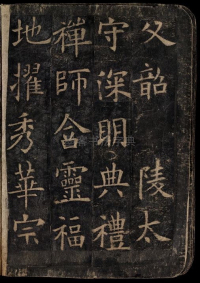 父韶　陵太
守深明典禮
禪師含靈福
地擢秀華宗